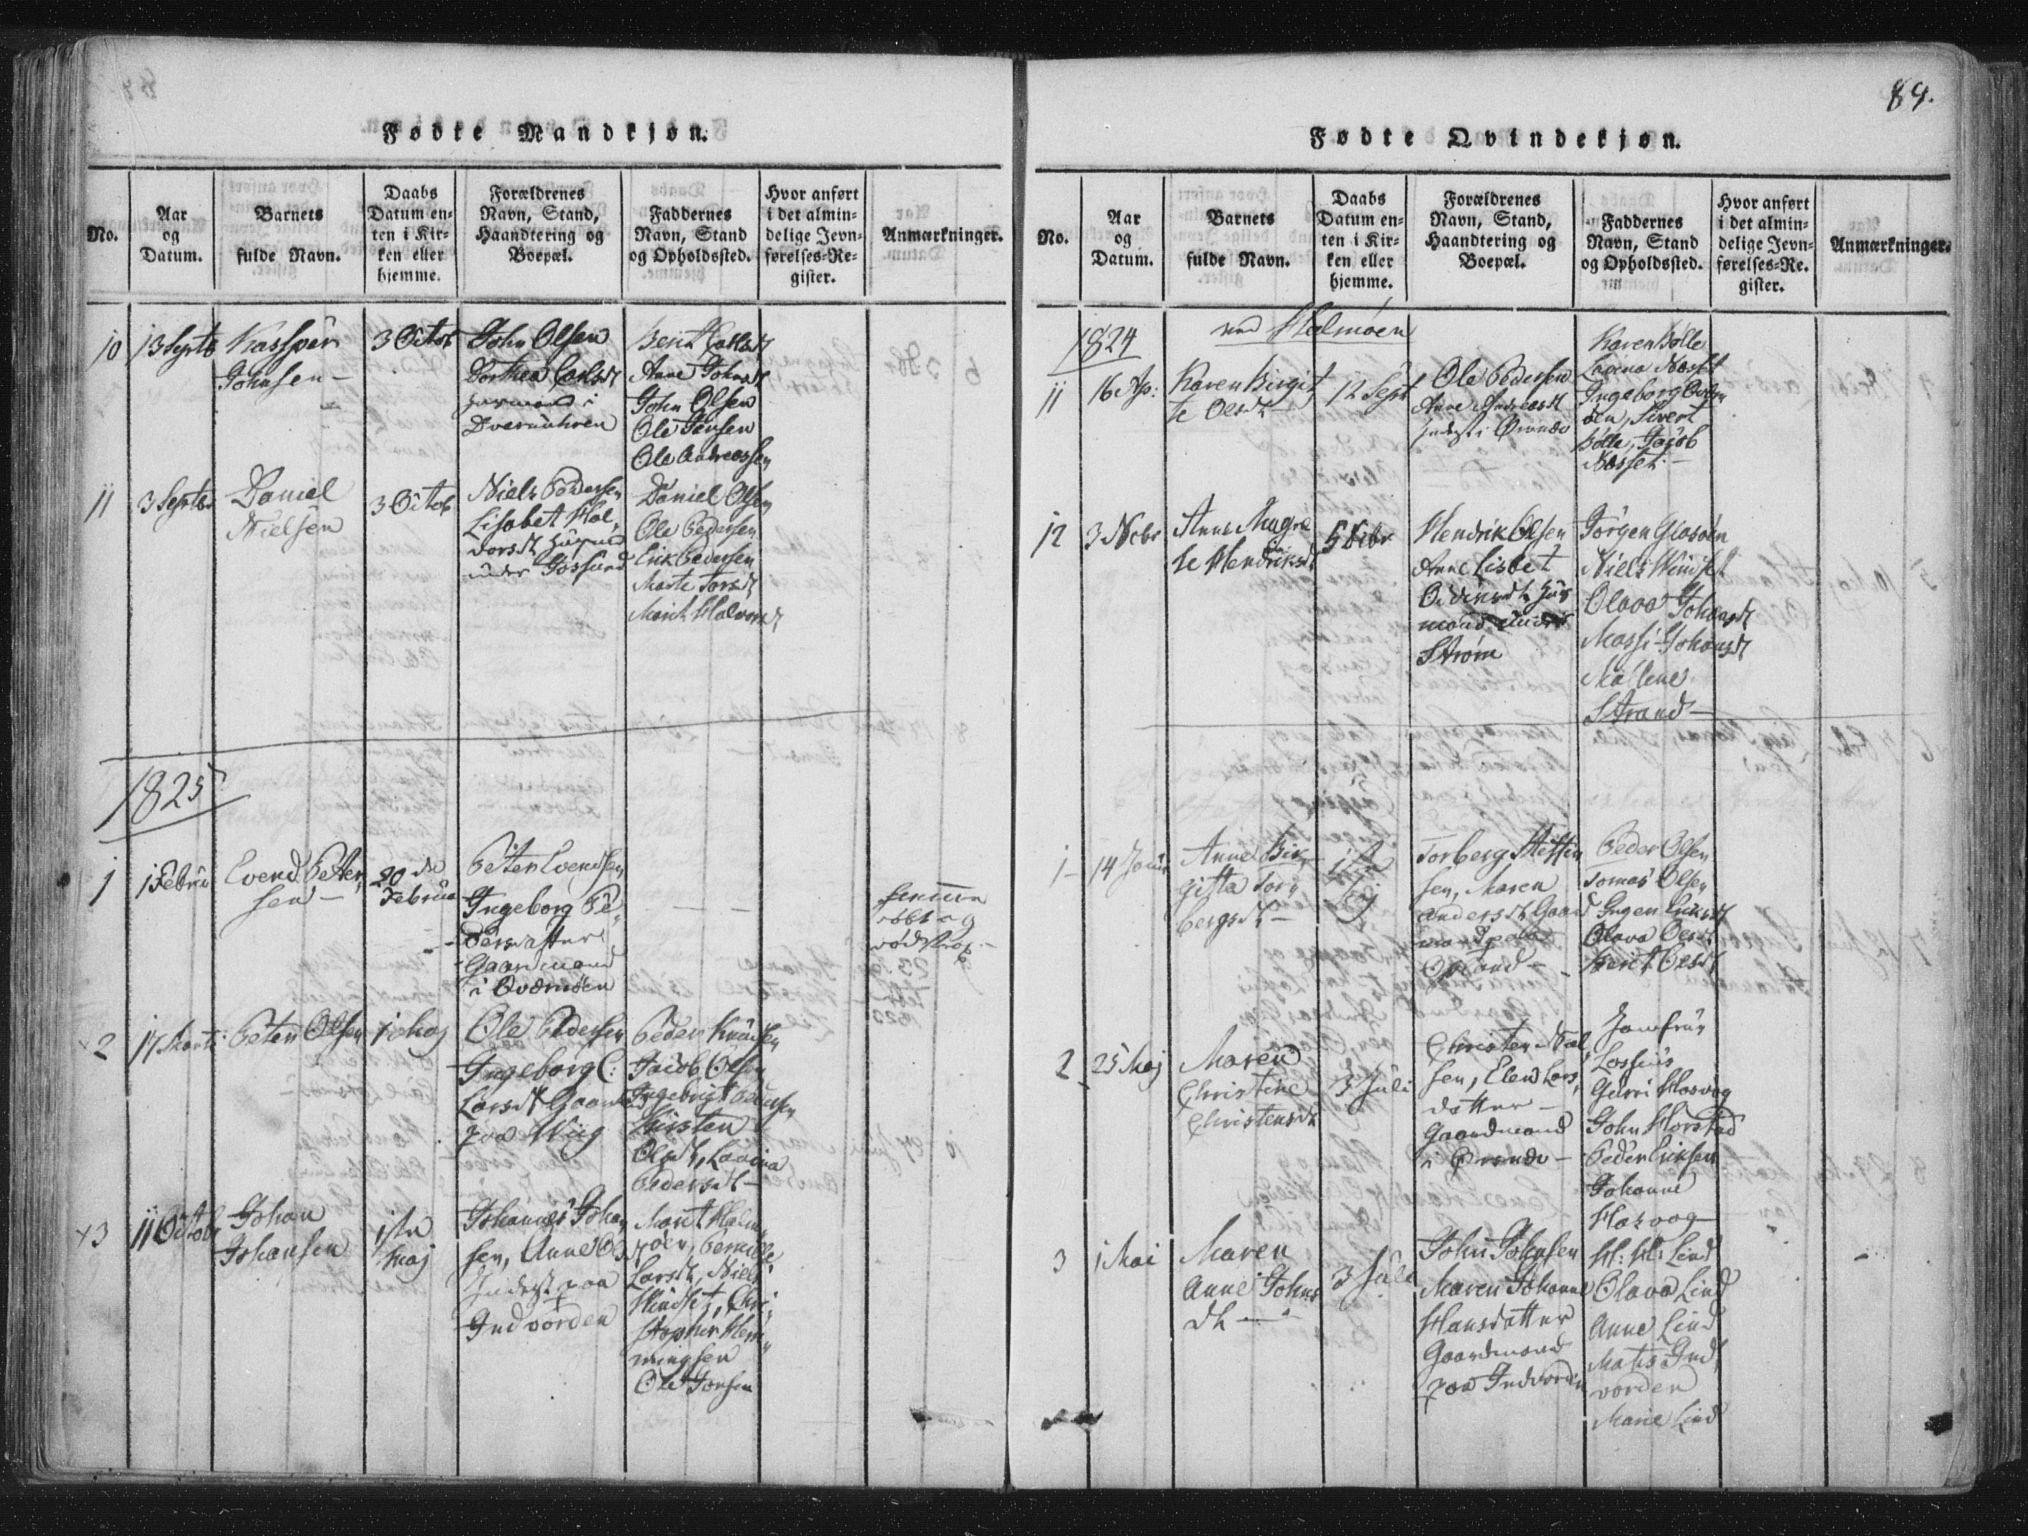 84.
Fødte Mandkjøn.
No.
Aar
og
Datum.
Barnets
fulde Navn.
Daabs
Datum en-
ten i Kir-
ken eller
hjemme.
Forældrenes
Navn, Stand,
Haandtering og
Boepæl.
Faddernes
Navn, Stand
og Opholdssted.
Hvor anført
i det almin-
delige Jevn-
førelses-Re-
gister.
Anmærkninger.
10
13 Septb
Kasper
Johnsen
3 Octob
John Olsen
Dorthea Carlsdt
Berit Carlsdt
Anne Johnsdt
John Olsen
Ole Jensen
Ole Andreassen
11
3 Septb
Daniel
Nielsen
3 Octob
Niels Pedersen
Lisabet Hal
vorsdt
under
Daniel Olsen
Ole Pedersen
Erik Pedersen
Marit Halvorsdt
1825
1
1 Febru
Evend Peter
sen
20 de
Februar
Peter Evendsen
Ingeborg Pe
dersdatter
Gaardmand
i Qværnøen
2
17 Marts
Peter Olsen
1 Maj
Ole Pedersen
Ingeborg C:
Larsdt Gaardm
paa Wiig
Peder Knudsen
Jacob Olsen
Ingebrigt Pedersen
Kirsten
Olsdt, Lavina
Pedersdt
3
11 Octobr
Johan
Johansen
1ste
Maj
Johannes Johan
sen, Anne Olsdt
Inderst paa
Indvorden
Marit Halm
øen, Pernille
Larsdt, Niels
Hindset, Chri
stopher Hem
mingsen
Ole Jonsen
Fødte Qvindekjøn.
No.
Aar
og
Datum.
Barnets
fulde Navn.
Daabs
Datum en-
ten i Kir-
ken eller
hjemme.
Forældrenes
Navn, Stand,
Haandtering og
Boepæl.
Faddernes
Navn, Stand
og Opholdssted.
Hvor anført
i det almin-
delige Jevn-
førelses-Re-
gister.
Anmærkninger.
1824
ved Halmøen
11
16 Ap:
Karen Birgit
te Olsdt
12 Sept
Ole Pedersen
Anne Andreasdt
Inderst i
Karen Bolle
Lavina Nasset
Ingeborg Qvern
øen, Sivert
Bolle, Jacob
Nasset
12
3 Nobr
Anne Magre
te Hendriksdt
5 Debr
Hendrik Olsen
Anne Lisbet
Hus
mand under
Strøm
Jørgen Grosøen
Niels Wiinset
Olava Johansdt
Massi Johansdt
Mallene
Strand
1
14 Janu
Anne Bir
gitta Tor
bergsdt
1ste
Torberg Steffen
sen, Maren
Andersdt Gaard
mand paa
Peder Olsen
Tomas Olsen
Ingen Eriksdt
Olava Olsdt
Berit Olsdt
2
25 Maj
Maren
Christine
Christensdt
3 Juli
Christen Nil
sen, Elen Lars
datter
Gaardmand
i
Jomfru
Lossius
Hasvog
John Horstad
Peder Eriksen
Johanne
Hasvog
3
1 Mai
Maren
Anne Johns
dt
3 Juli
John Johnsen
Maren Johanne
Hansdatter
Gaardmand
paa Indvorden
H: H: Lind
Olava Lind
Anne Lind
Matis Ind
vorden
Marie Lind